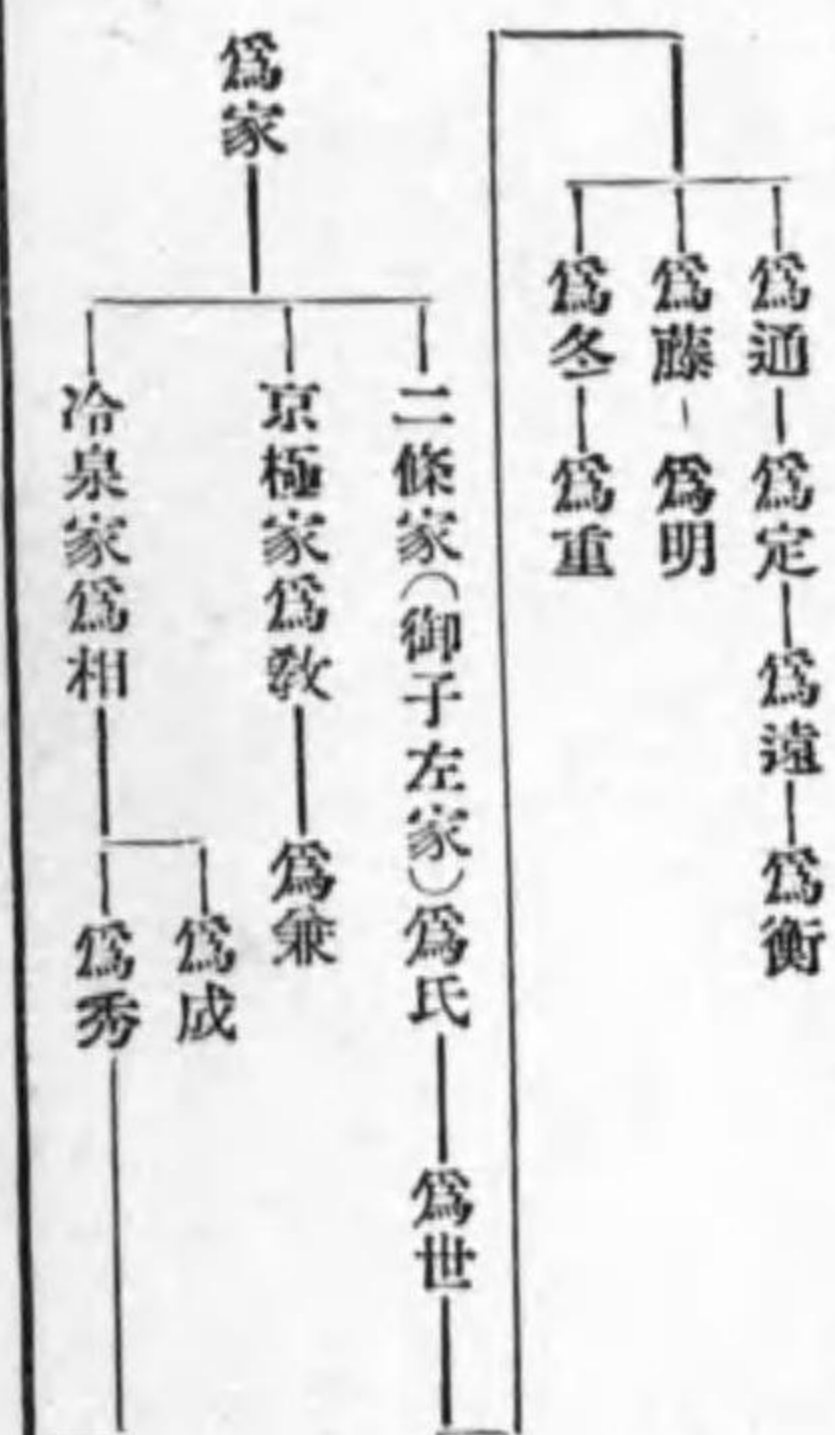 爲通―爲定―爲遠―爲衡
爲藤―爲明
爲冬―爲重
二條家(御子左家)爲氏―爲世
京極家爲敎―爲兼
爲家
爲成
冷泉家爲相
爲秀